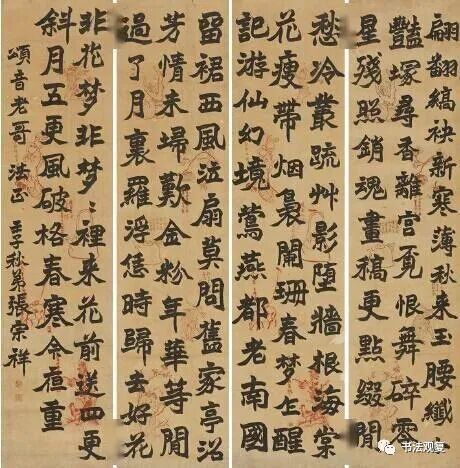 翩翻縞袂新寒薄秋来玉腰纖
豔塚尋香離宮覓恨舞碎零
星殘照銷魂畫稿更點綴閒
愁冷叢疏艸影堕牆根海棠
花瘦帶烟裊闌珊春夢乍醒
記游仙幻境鶯燕都老南國
留裙西風泣扇莫問舊家亭沼
芳情未埽歎金粉年華等閒
過了月裏羅浮恁時歸去好花
非花梦非梦〻裡来花前送四更
斜月五更風破格春寒今重
頌音老哥 法正 壬子秋弟張宗祥
书法观复